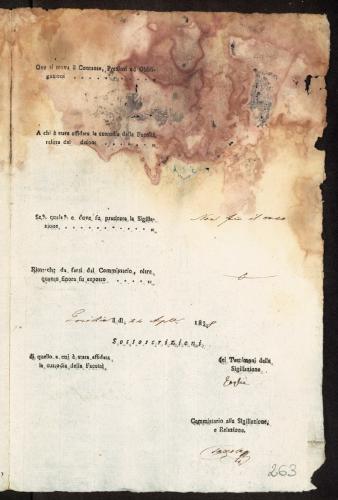 Ove si trova il Contante, Preziosi ed Obbli-
gazioni
A chi è stata affidata la custodia della Facoltà,
relitta dal defunto
Se, quale, e dove fu praticata la Sigilla-
zione Non fu il caso
Rimarche da farsi dal Commissario, oltre
quanto figura su esposto
li di 24 Aple 182
Sottoscrizioni
di quello a cui è stata affidata
la custodia della Facoltà
dei Testimonj della
Sigillazione
Commissario alla Sigillazione,
e Relazione.
263